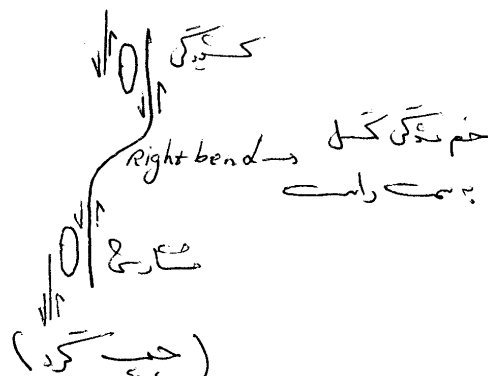 کشیدگی
Right bend → خم شدگی گسل
به سمت راست
فشارش
(چپ گرد)